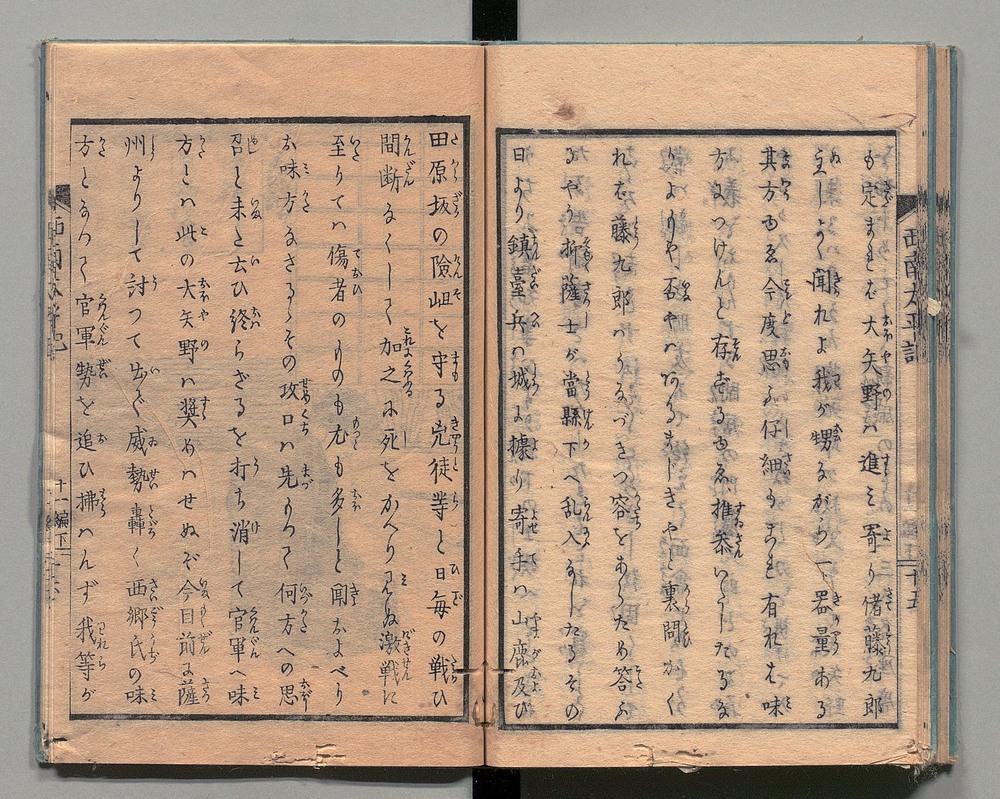 も定まれば大矢野は進ミ寄り偖藤九郎
主しよく聞れよ我が甥ながら一器量ある
其方ゆゑ今度思ふ仔細のこれ有れば味
方につけんと存ずるゆゑ推参いたしたるな
りよもや否やハあるまじきやと裏問かく
れば藤九郎ハうなづきつ容をあらため答ふ
るやう折薩士が當縣下へ乱入なしたるその
日より鎮臺兵ハ城に據り寄手ハ山鹿及び
田原坂の險岨を守る兇徒等と日毎の戦ひ
間断なくして加之ず死をかへり見ぬ激戦に
至りてハ傷者のものも尤も多しと聞およべり
お味方なさるゝその攻口ハ先もつて何方への思
召と未だ云ひ終らざるを打ち消して官軍へ味
方とハ此の大矢野ハ奨めハせぬぞ今目前に薩
州よりして討つて出で威勢轟く西郷氏の味
方となつて官軍勢を追ひ拂はんず我等が
西南太平記
十五
十一編下